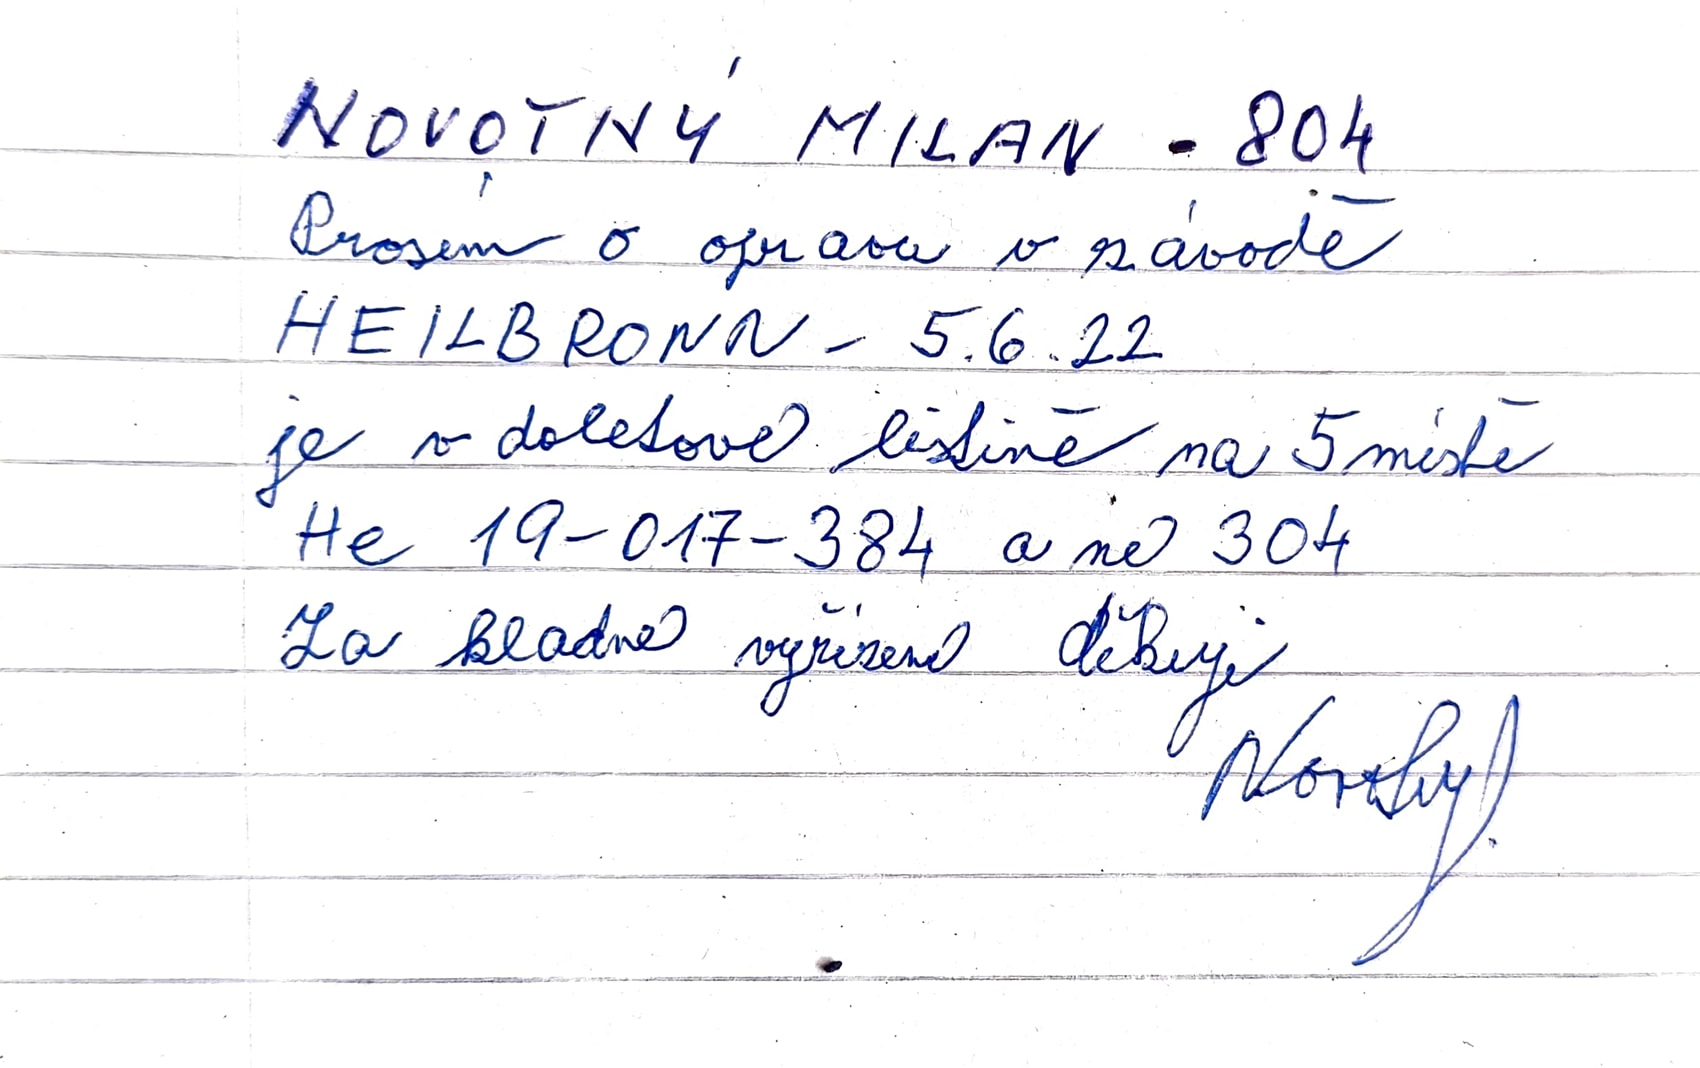 NOVOTNÝ MILAN - 804
Prosím o opravu v závodě
HEILBRONN - 5.6.22
je v doletové listině na 5 místě
He 19-017-384 a né 304
Za kladné vyřízení děkuji
Novotný